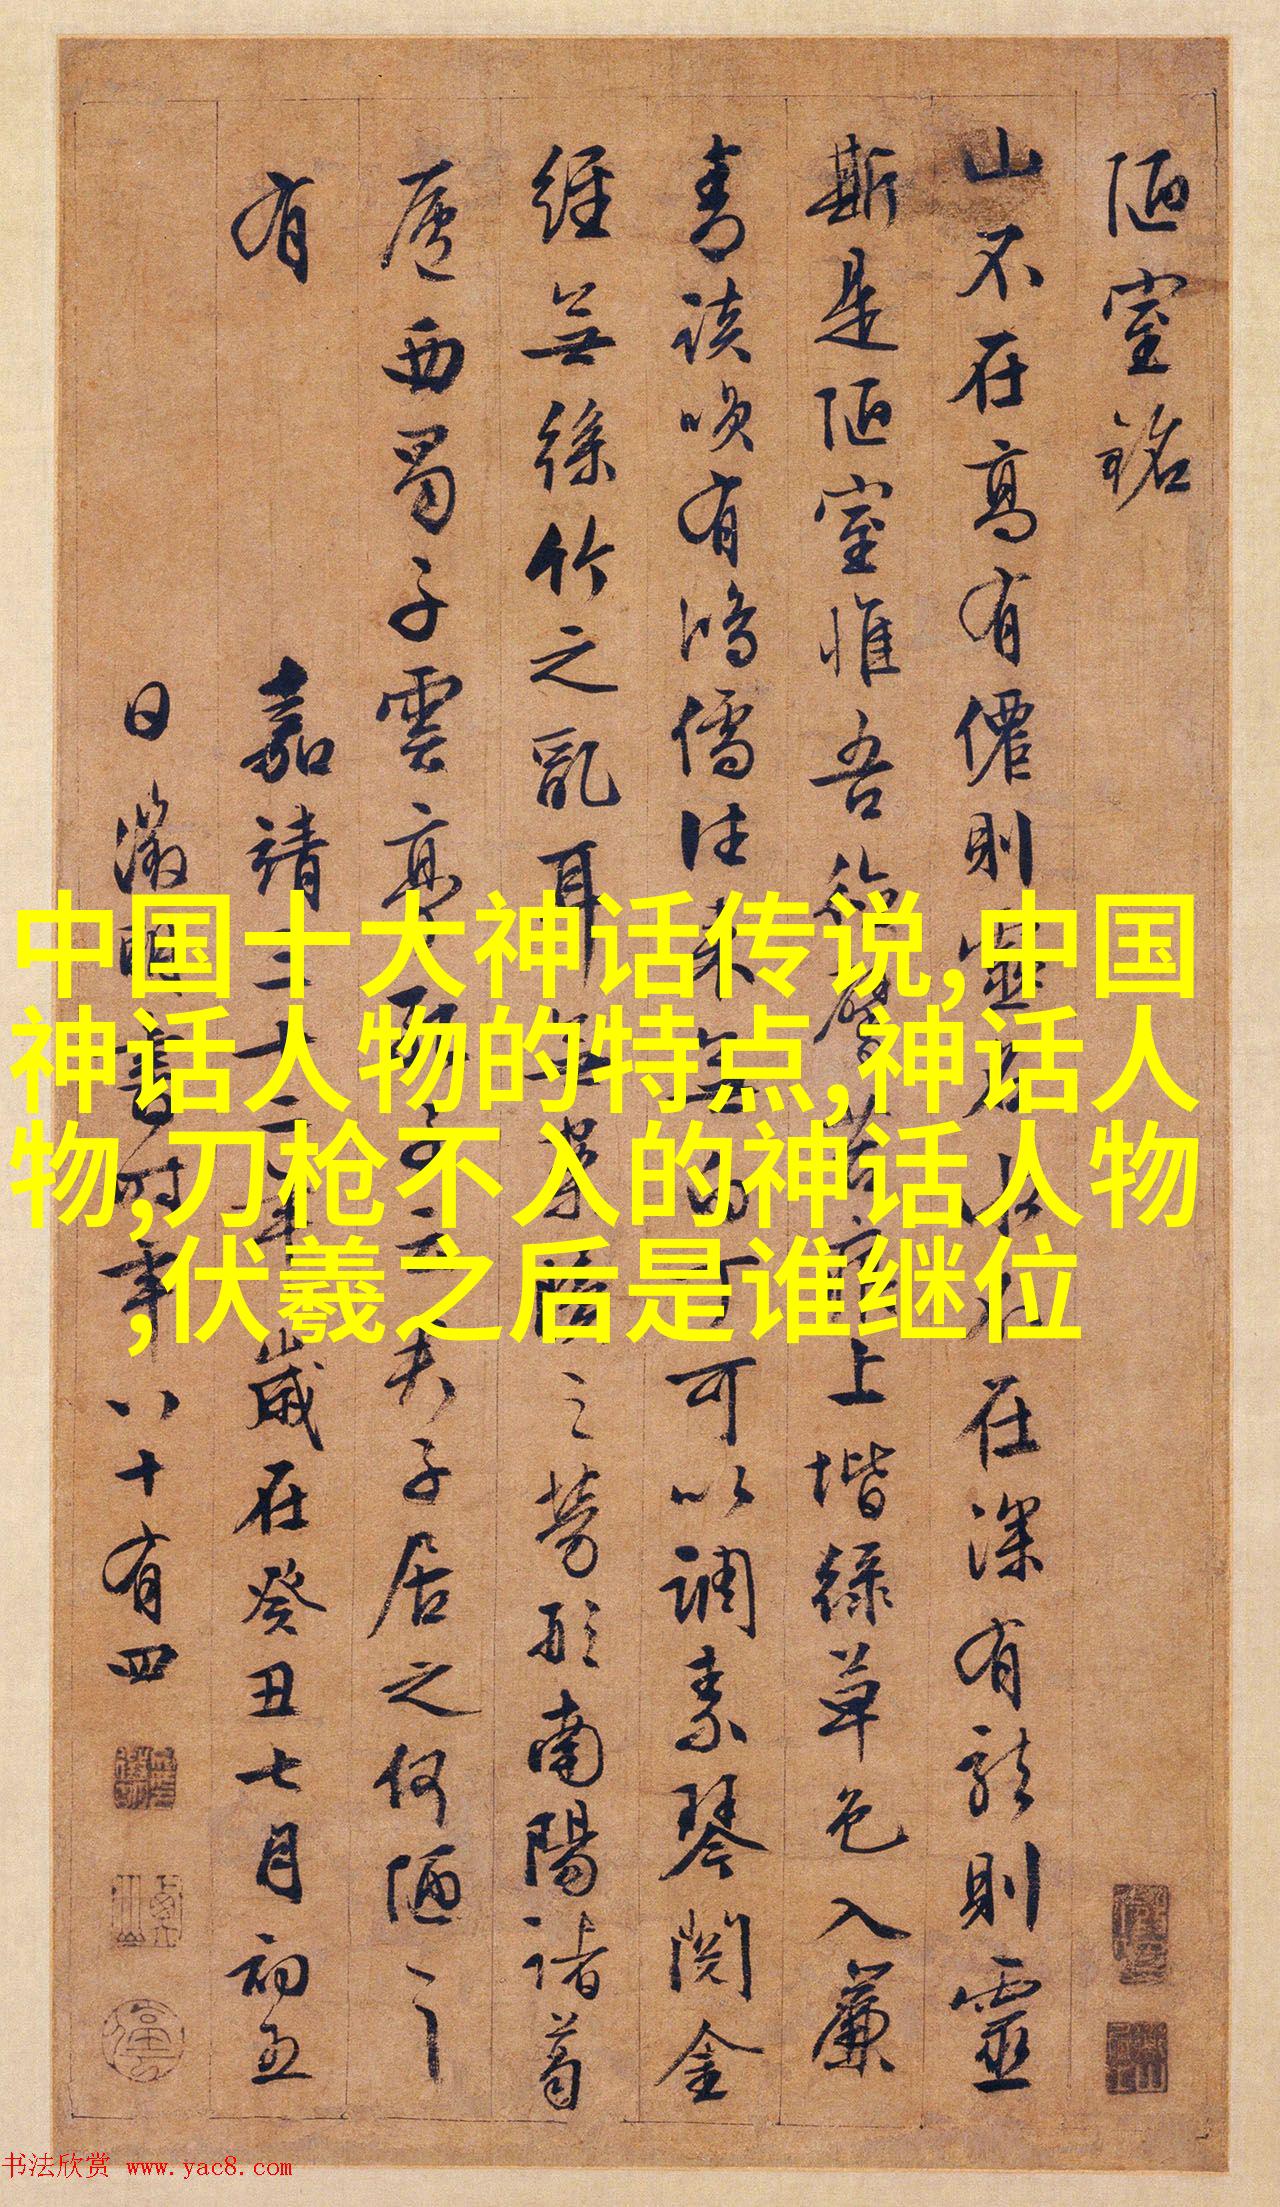 陋室銘
山不在高有僊則靈名水不在深有龍則靈
斯是陋室惟吾德馨苔痕上堦緑草色入簾
青談咲有鴻儒往来無白丁可以調素琴閱金
經無絲竹之亂耳無案牘之勞形南陽諸葛
廬西蜀子雲亭孔子云夫子居之何陋之
有
嘉靖三十二年歲在癸丑七月初五
日徵明書時年八十有四
中国十大神话传说,中国
神话人物的特点,神话人
物,刀枪不入的神话人物
,伏羲之后是谁继位
书法欣赏 www.yac8.com